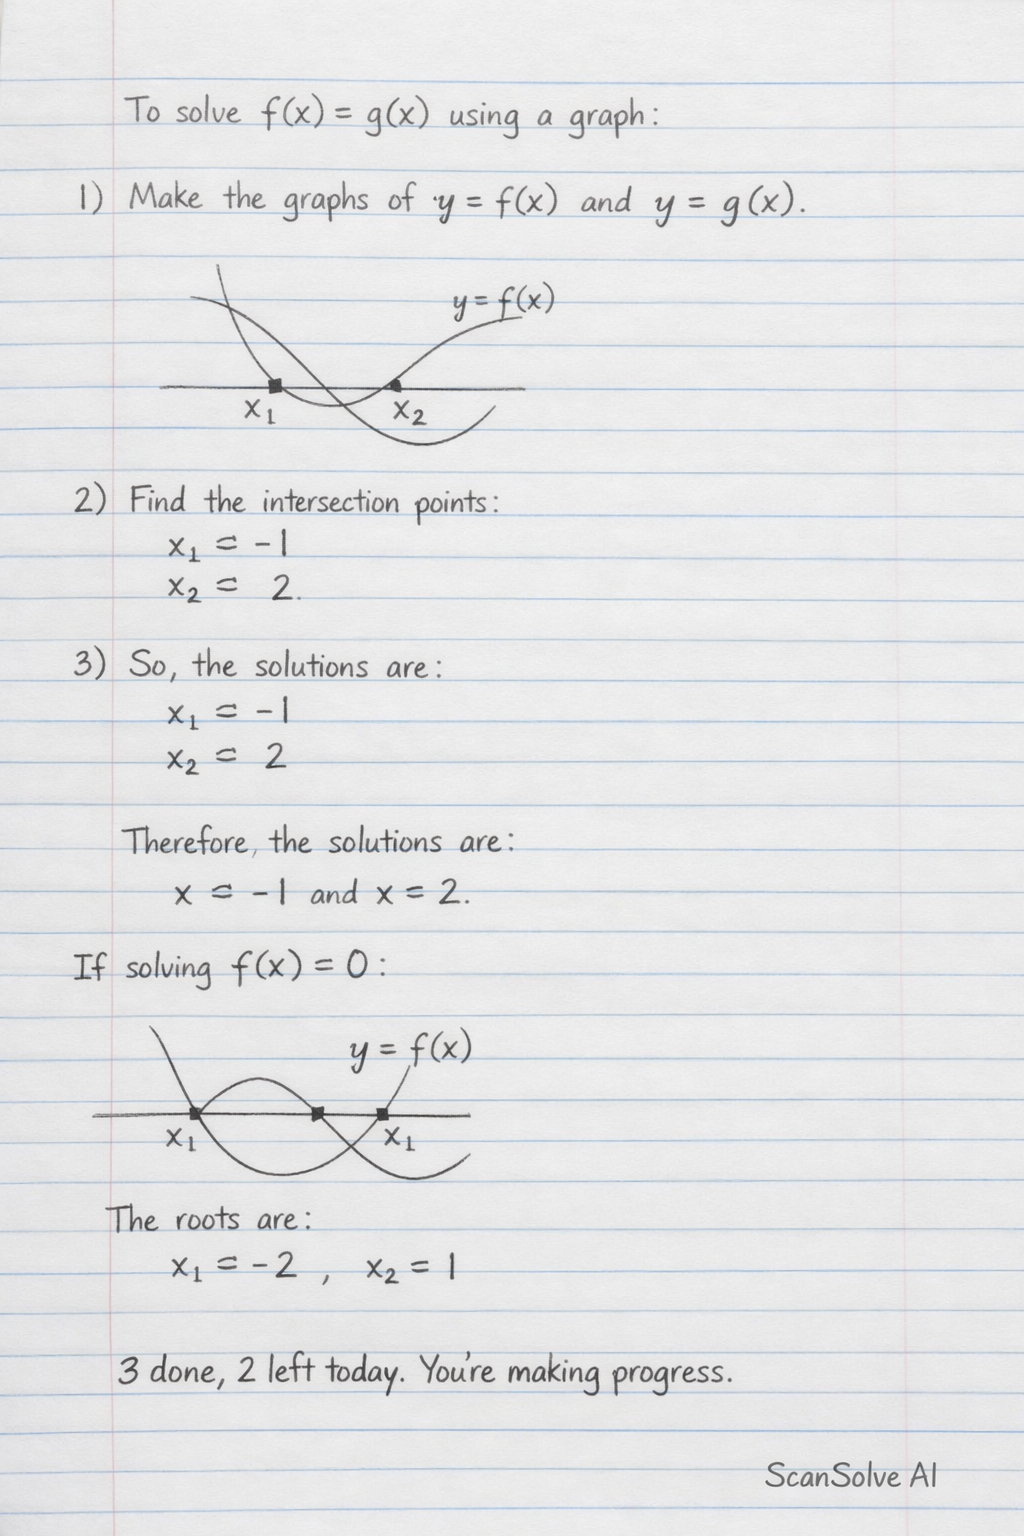 To solve f(x) = g(x) using a graph:
1) Make the graphs of y = f(x) and y = g(x).
y = f(x)
x₁ x₂
2) Find the intersection points:
x₁ = -1
x₂ = 2.
3) So, the solutions are:
x₁ = -1
x₂ = 2
Therefore, the solutions are:
x = -1 and x = 2.
If solving f(x) = 0:
y = f(x)
x₁ x₁
The roots are:
x₁ = -2 , x₂ = 1
3 done, 2 left today. You're making progress.
ScanSolve AI